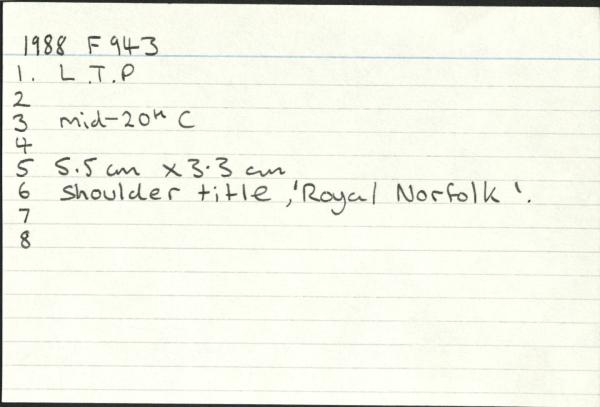 1988 F 943
1. L.T.P
2
3 mid-20th C
4
5 5.5 cm x 3.3 cm
6 shoulder title, 'Royal Norfolk'.
7
8